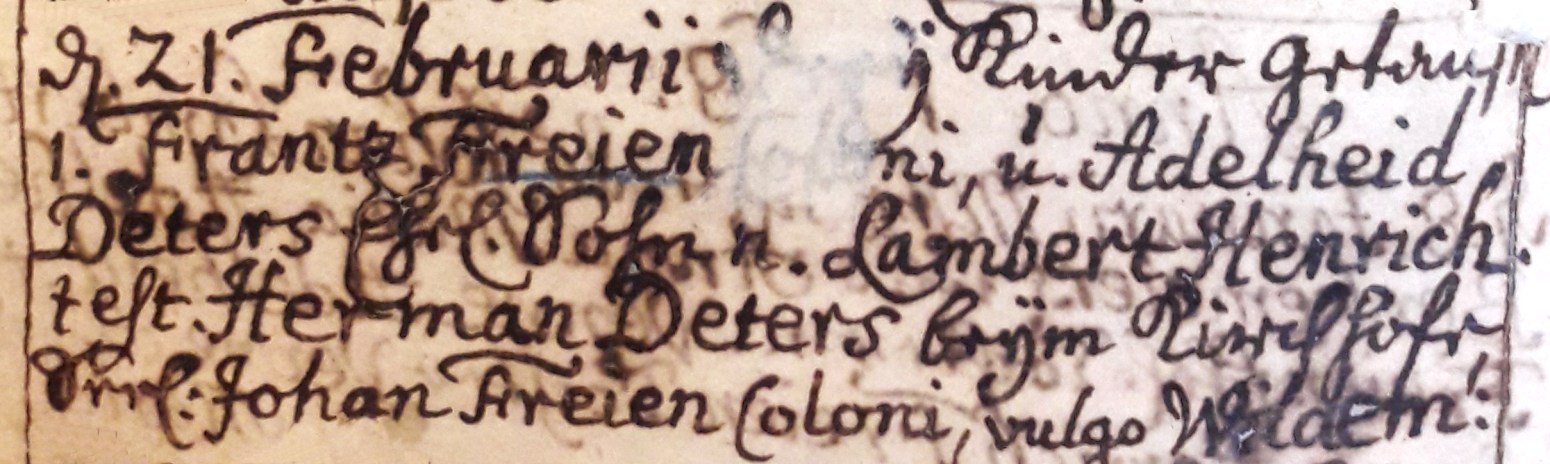 d. 21. Februarii Kinder getauft
1. Frantz Freien Coloni, u. Adelheid
Deters Ehel. Sohn n. Lambert Henrich.
test. Herman Deters beÿm Kirchhofe,
Johan Freien Coloni, vulgo Wildem: